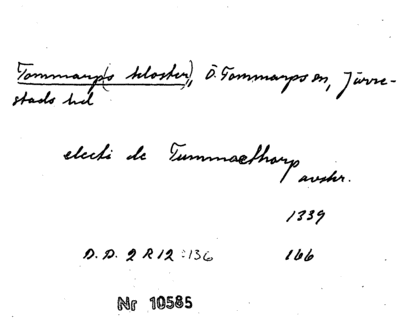 Tommarp(s kloster), Ö. Tommarps sn, Järre-
stads hd
electi de Tummaethorp
avskr.
1339
D.D. 2 R 12 : 136 166
Nr 10585